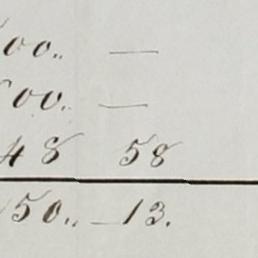 00.. —
00. —
48 58
50.. 13.